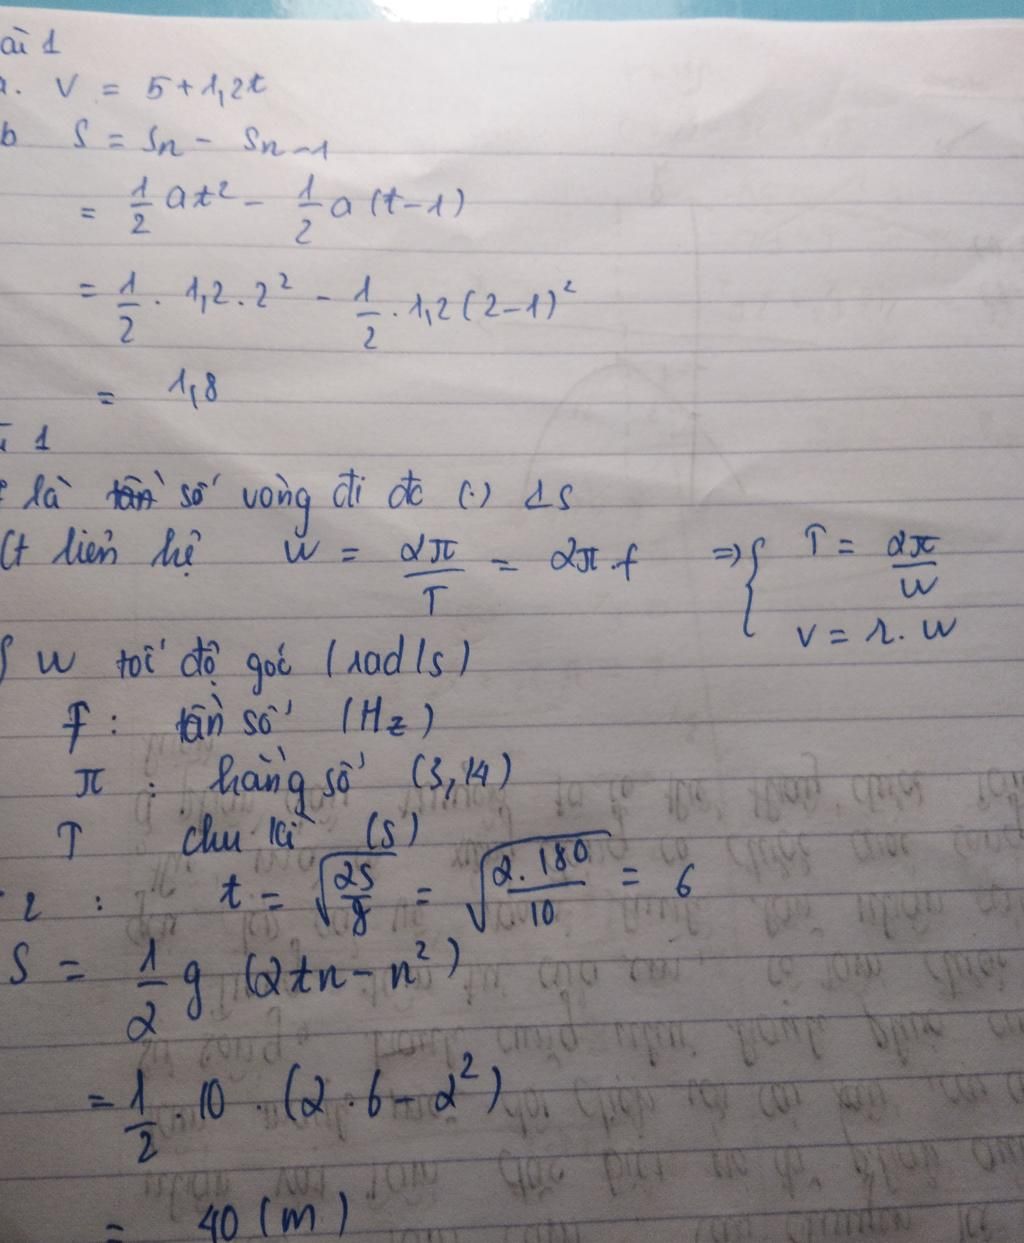 ài 1
a. V = 5 + 1,2t
b S = Sn - Sn-1
= 1/2 at² - 1/2 a (t-1)
= 1/2 . 1,2 . 2² - 1/2 . 1,2 (2-1)²
= 1,8
1
là tần số vòng đi đc (.) 1s
Ct liên hệ W = 2π/T = 2π.f => { T = 2π/W
V = r. W
W tốc độ góc (rad/s)
f : tần số (Hz)
π : hằng số (3,14)
T chu kì (s)
2 : t = √(2S/g) = √(2.180/10) = 6
S = 1/2 g (2tn - n²)
= 1/2 . 10 . (2 . 6 - 2²)
= 40 (m)